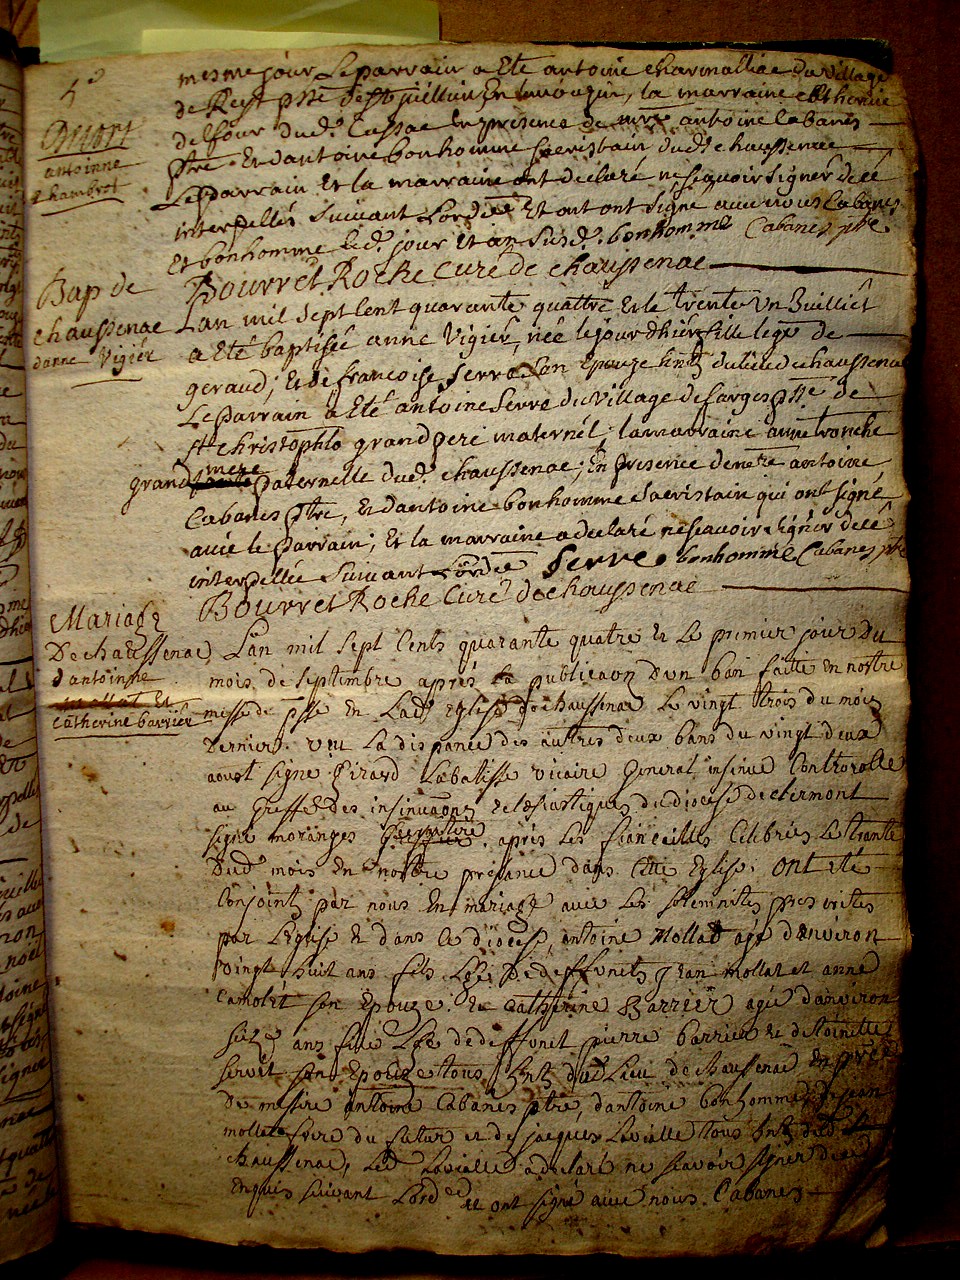 mesme jour Le parrain a Eté antoine charmalliac du village
de Reyt psse de st in, la marraine Catherine
delfour dud. Cussac En presence de mre antoine Cabanes
ptre Et d'antoine bonhomme sacristain dud. chaussenac
Le parrain Et la marraine ont declaré ne sçavoir signer de ce
interpellés suivant Lord.ce Et ont signé avec nous Cabanes
Et bonhomme led. jour et an susd. bonhomme Cabanes ptre
Bourret Roche Curé de chaussenac
Bap de
chaussenac
danne Vigier
Lan mil sept Cent quarante quattre Et le trente Un Juilliet
a Eté baptisée anne Vigier, née le jour d'hier fille lege de
geraud; Et de francoise Serre son Epouze hnts du lieu de chaussenac
Le parrain a Eté antoine Serre du village de farges psse de
st christophle grand pere maternel; la marraine anne tronche
grand mere paternelle dud. chaussenac; En presence de mre antoine
Cabanes ptre, Et d'antoine bonhomme sacristain qui ont signé
avec le parrain; Et la marraine a declaré ne scavoir signer de ce
interpellée suivant Lord.ce Serre bonhomme Cabanes ptre
Bourret Roche Curé de chaussenac
Mariage
De chaussenac
d'antoinne
mollat Et
Catherine barrier
Lan mil sept Cents quarante quatre Et Le premier jour Du
mois de septembre aprés la publicaon Dun ban faitte en nostre
messe de psse En Lad. Eglise de chaussenac Le vingt trois du mois
Dernier. veu La dispance des autres deux bans du vingt deux
aoust signé Girard Labatisse vicaire General insinué Controrollé
au Greffe des insinuaons Eclesiastiques du diocese de clermont
signé moranges Greffier. aprés Les fiancailles Celebrées Le trante
Dud. mois En nostre presance dans Cette Eglise. ont été
Conjoints par nous En mariage avec Les solemnités prescrites
par Leglise Et dans Ce diocese, antoine Mollat agé d'anviron
vingt huit ans fils Lege De deffunts Jean mollat et anne
Camolet son Epouze. Et Catherine Barrier agée d'anviron
seize ans fille Lege de deffunt pierre barrier Et de toinette
servet son Epouze tous hnts dud. Lieu de chaussenac En prece
De messire antoine Cabanes ptre, d'antoine bonhomme, de jean
mollat frere du futur et de jacques Lavialle tous hnts dud.
chaussenac, Led. Lavialle a declaré ne scavoir signer de ce
Enquis suivant Lord.ce Et ont signé avec nous. Cabanes